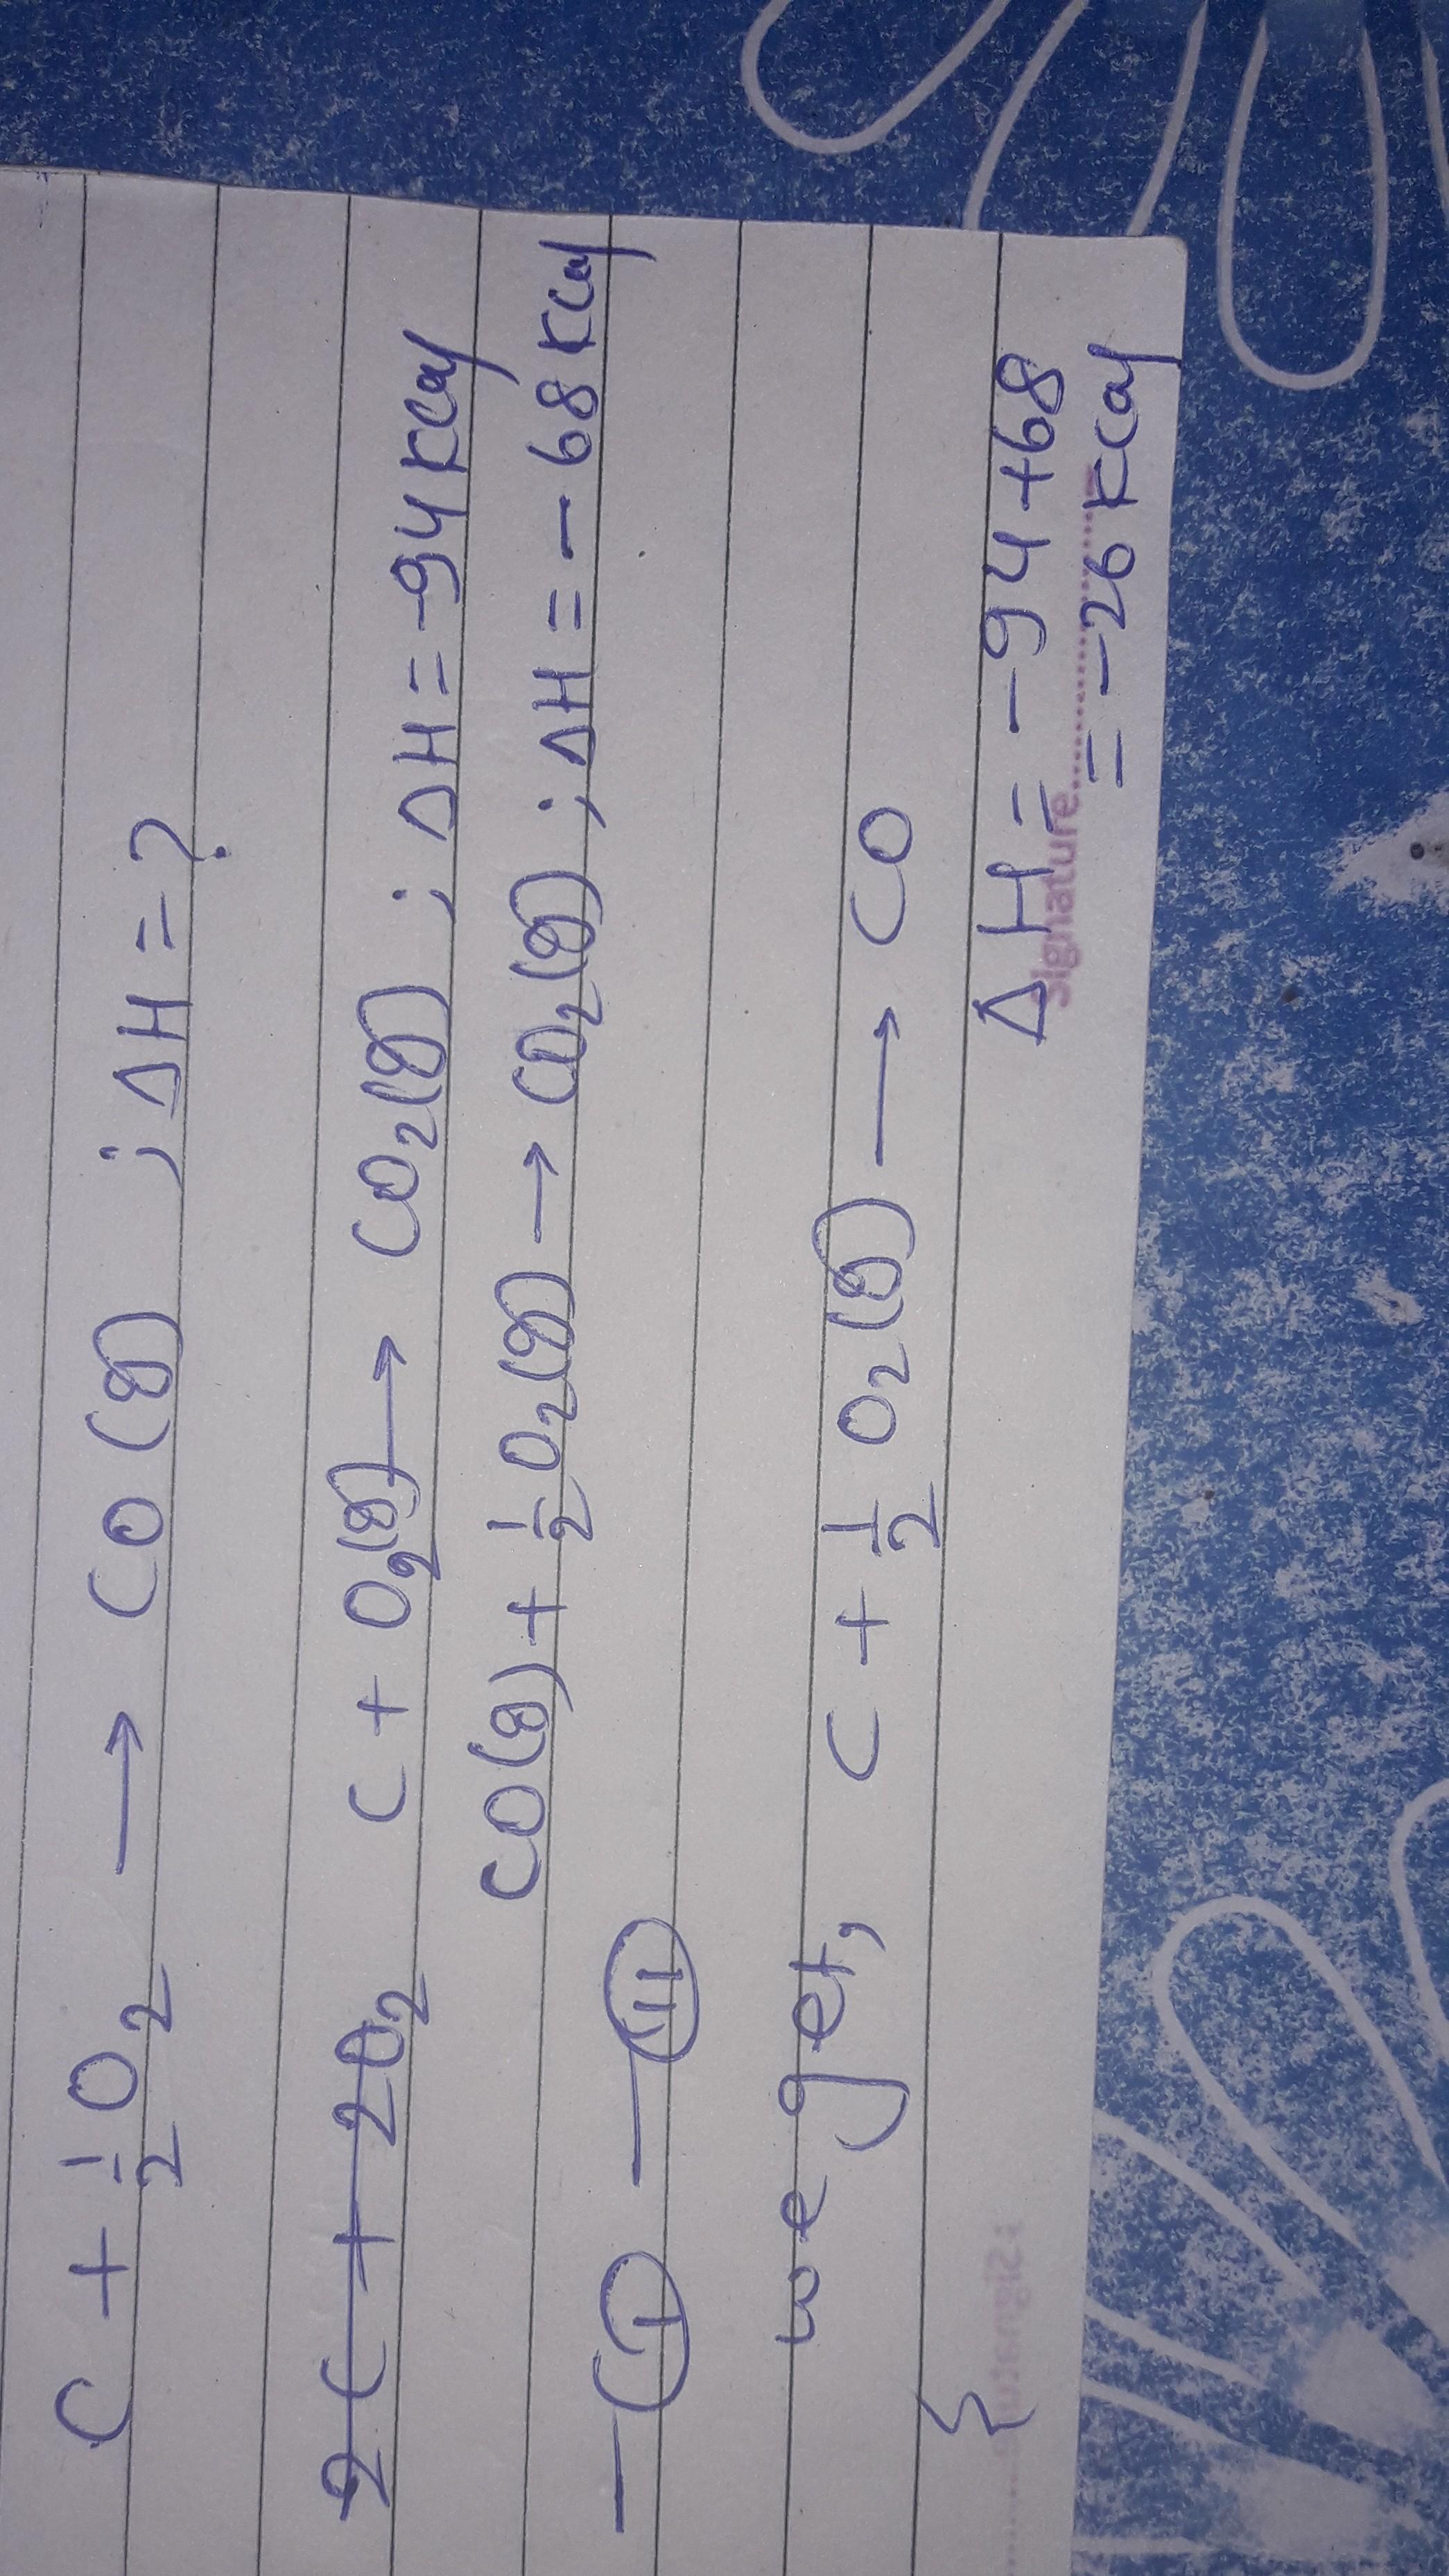 C + 1/2 O₂ → CO (g) ; ΔH = ?
2C + 2O₂ C + O₂(g) → CO₂(g) ; ΔH = -94 Kcal
CO(g) + 1/2 O₂(g) → CO₂(g) ; ΔH = - 68 Kcal
— I — II
we get, C + 1/2 O₂(g) → CO
ΔH = -94 + 68
Signature
= -26 Kcal